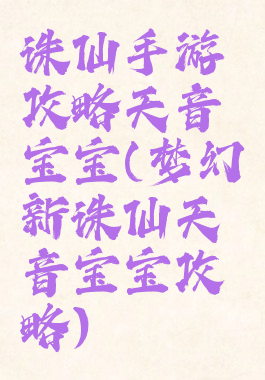 诛仙手游
攻略天音
宝宝(梦幻
新诛仙天
音宝宝攻
略)